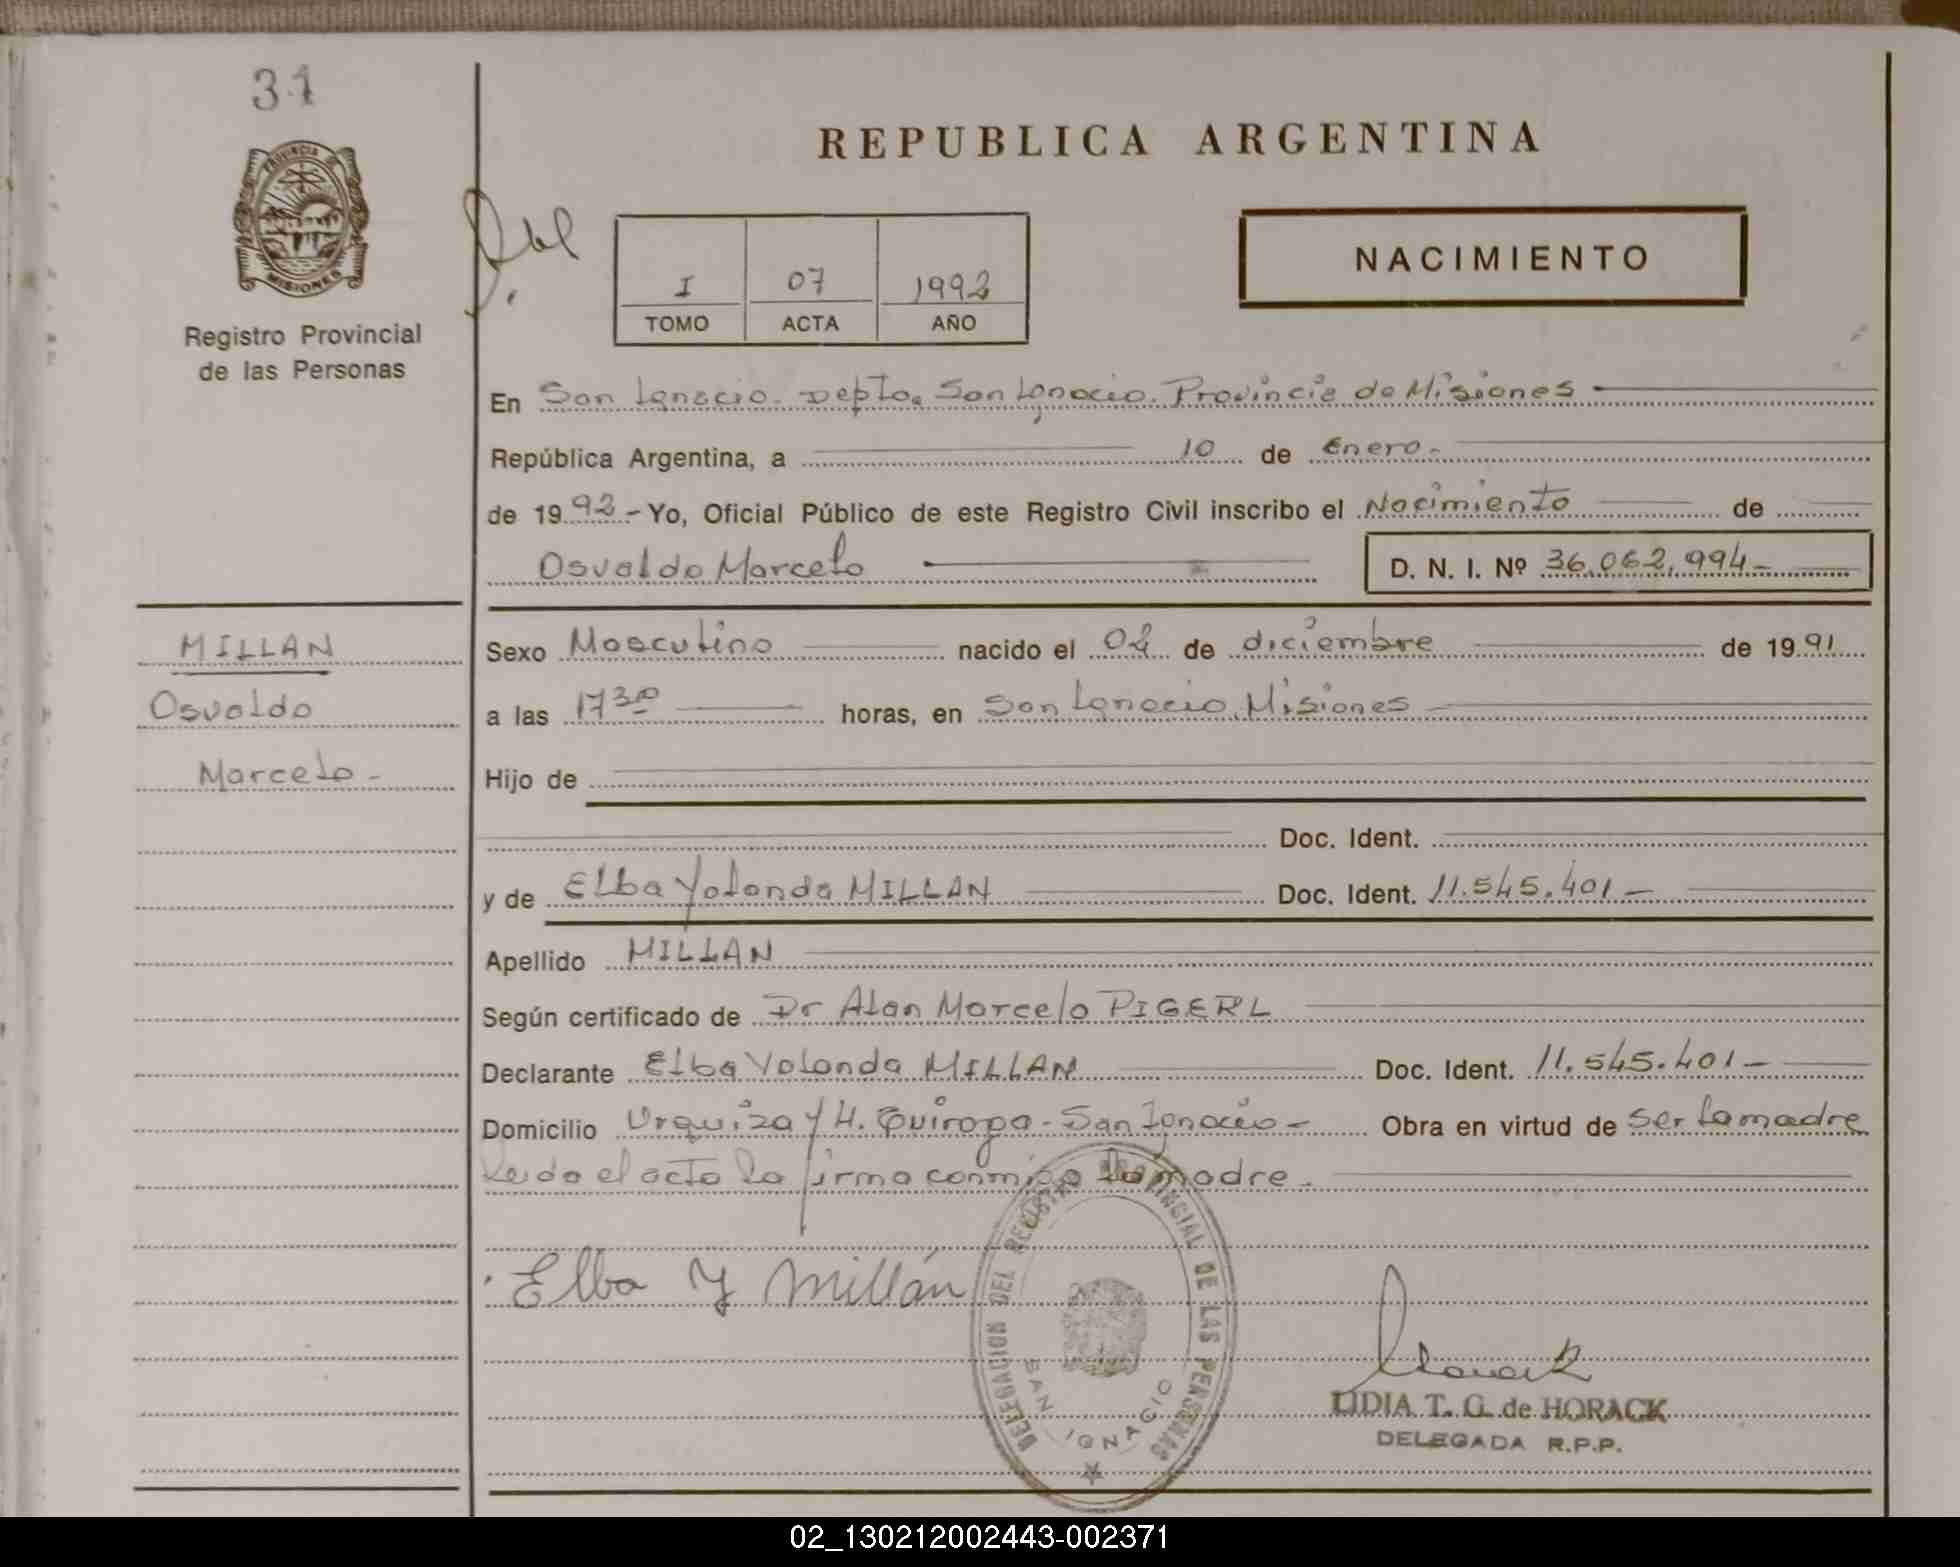 31
PROVINCIA DE
MISIONES
Registro Provincial
de las Personas
REPUBLICA ARGENTINA
NACIMIENTO
I 07 1992
TOMO ACTA AÑO
En San Ignacio. Depto. San Ignacio. Provincia de Misiones
República Argentina, a 10 de Enero.
de 1992 - Yo, Oficial Público de este Registro Civil inscribo el Nacimiento de
Osvaldo Marcelo D. N. I. Nº 36.062.994-
MILLAN
Osvaldo
Marcelo -
Sexo Masculino nacido el 02 de diciembre de 1991
a las 17 30 horas, en San Ignacio, Misiones
Hijo de
Doc. Ident.
y de Elba Yolanda MILLAN Doc. Ident. 11.545.401-
Apellido MILLAN
Según certificado de Dr Alan Marcelo PIGERL
Declarante Elba Yolanda MILLAN Doc. Ident. 11.545.401-
Domicilio Urquiza y H. Quiroga - San Ignacio - Obra en virtud de ser la madre
Leida el acta la firma conmigo la madre.
Elba Y Millán
DELEGACION DEL REGISTRO PROVINCIAL DE LAS PERSONAS
SAN IGNACIO
Horack
LIDIA T. G. de HORACK
DELEGADA R.P.P.
02_130212002443-002371